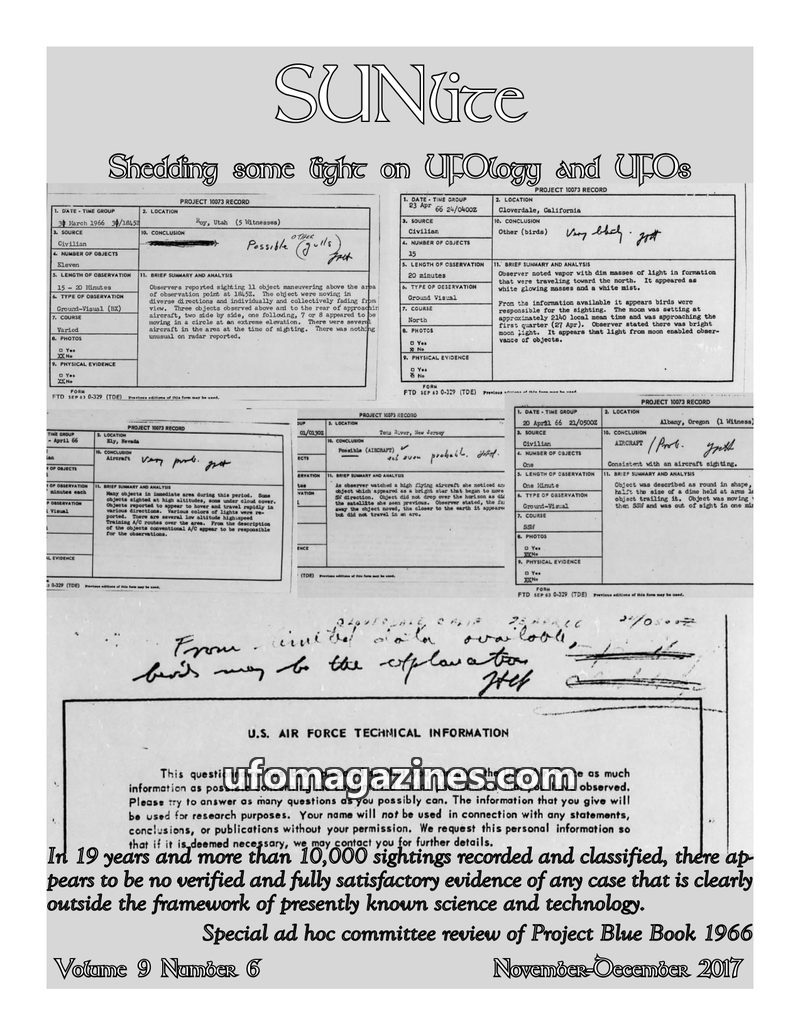 SUNlite
Shedding some light on UFOlogy and UFOs
PROJECT 10073 RECORD
1. DATE - TIME GROUP
March 1966
2. LOCATION
Roy, Utah (5 Witnesses)
3. SOURCE
Civilian
10. CONCLUSION
Possible OTHER (gulls)
4. NUMBER OF OBJECTS
Eleven
5. LENGTH OF OBSERVATION
15 - 20 Minutes
11. BRIEF SUMMARY AND ANALYSIS
Observers reported sighting 11 object maneuvering above the area
of observation point at 1845Z. The object were moving in
diverse directions and individually and collectively fading from
view. Three objects observed above and to the rear of approaching
aircraft, two side by side, one following, 7 or 8 appeared to be
moving in a circle at an extreme elevation. There were several
aircraft in the area at the time of sighting. There was nothing
unusual on radar reported.
6. TYPE OF OBSERVATION
Ground-Visual (BX)
7. COURSE
Varied
8. PHOTOS
□ Yes
XX No
9. PHYSICAL EVIDENCE
□ Yes
XX No
FORM
FTD SEP 63 0-329 (TDE) Previous editions of this form may be used.
PROJECT 10073 RECORD
1. DATE - TIME GROUP
23 Apr 66 24/0400Z
2. LOCATION
Cloverdale, California
3. SOURCE
Civilian
10. CONCLUSION
Other (birds) Very likely.
4. NUMBER OF OBJECTS
15
5. LENGTH OF OBSERVATION
20 minutes
11. BRIEF SUMMARY AND ANALYSIS
Observer noted vapor with dim masses of light in formation
that were traveling toward the north. It appeared as
white glowing masses and a white mist.
From the information available it appears birds were
responsible for the sighting. The moon was setting at
approximately 2140 local mean time and was approaching the
first quarter (27 Apr). Observer stated there was bright
moon light. It appears that light from moon enabled obser-
vance of objects.
6. TYPE OF OBSERVATION
Ground Visual
7. COURSE
North
8. PHOTOS
□ Yes
No
9. PHYSICAL EVIDENCE
□ Yes
No
FORM
FTD SEP 63 0-329 (TDE) Previous editions of this form may be used.
PROJECT 10073 RECORD
TIME GROUP
- April 66
2. LOCATION
Ely, Nevada
10. CONCLUSION
Aircraft Very prob.
OF OBJECTS
OF OBSERVATION
minutes each
11. BRIEF SUMMARY AND ANALYSIS
Many objects in immediate area during this period. Some
objects sighted at high altitudes, some under cloud cover.
Objects reported to appear to hover and travel rapidly in
various directions. Various colors of lights were re-
ported. There are several low altitude high-speed
Training A/C routes over the area. From the description
of the objects conventional A/C appear to be responsible
for the observations.
OBSERVATION
Visual
EVIDENCE
0-329 (TDE) Previous editions of this form may be used.
PROJECT 10073 RECORD
01/0130Z
2. LOCATION
Toms River, New Jersey
10. CONCLUSION
Possible (AIRCRAFT)
not even probable.
11. BRIEF SUMMARY AND ANALYSIS
As observer watched a high flying aircraft she noticed an
object which appeared as a bright star that began to move
SW direction. Object did not drop over the horizon as did
the satellite she seen previous. Observer stated, the
away the object moved, the closer to the earth it appeared
but did not travel in an arc.
(TDE) Previous editions of this form may be used.
PROJECT 10073 RECORD
1. DATE - TIME GROUP
20 April 66 21/0500Z
2. LOCATION
Albany, Oregon (1 Witness)
3. SOURCE
Civilian
10. CONCLUSION
AIRCRAFT /Prob.
Consistent with an aircraft sighting.
4. NUMBER OF OBJECTS
One
5. LENGTH OF OBSERVATION
One Minute
11. BRIEF SUMMARY AND ANALYSIS
Object was described as round in shape,
half the size of a dime held at arms
object trailing it. Object was moving
then SSW and was out of sight in one
6. TYPE OF OBSERVATION
Ground-Visual
7. COURSE
SSW
8. PHOTOS
□ Yes
XX No
9. PHYSICAL EVIDENCE
□ Yes
XX No
FORM
FTD SEP 63 0-329 (TDE) Previous editions of this form may be used.
From limited data available,
birds may be the explanation
U.S. AIR FORCE TECHNICAL INFORMATION
This as much
information as observed.
Please try to answer as many questions as you possibly can. The information that you give will
be used for research purposes. Your name will not be used in connection with any statements,
conclusions, or publications without your permission. We request this personal information so
that if it is deemed necessary, we may contact you for further details.
ufomagazines.com
In 19 years and more than 10,000 sightings recorded and classified, there ap-
pears to be no verified and fully satisfactory evidence of any case that is clearly
outside the framework of presently known science and technology.
Special ad hoc committee review of Project Blue Book 1966
Volume 9 Number 6
November-December 2017